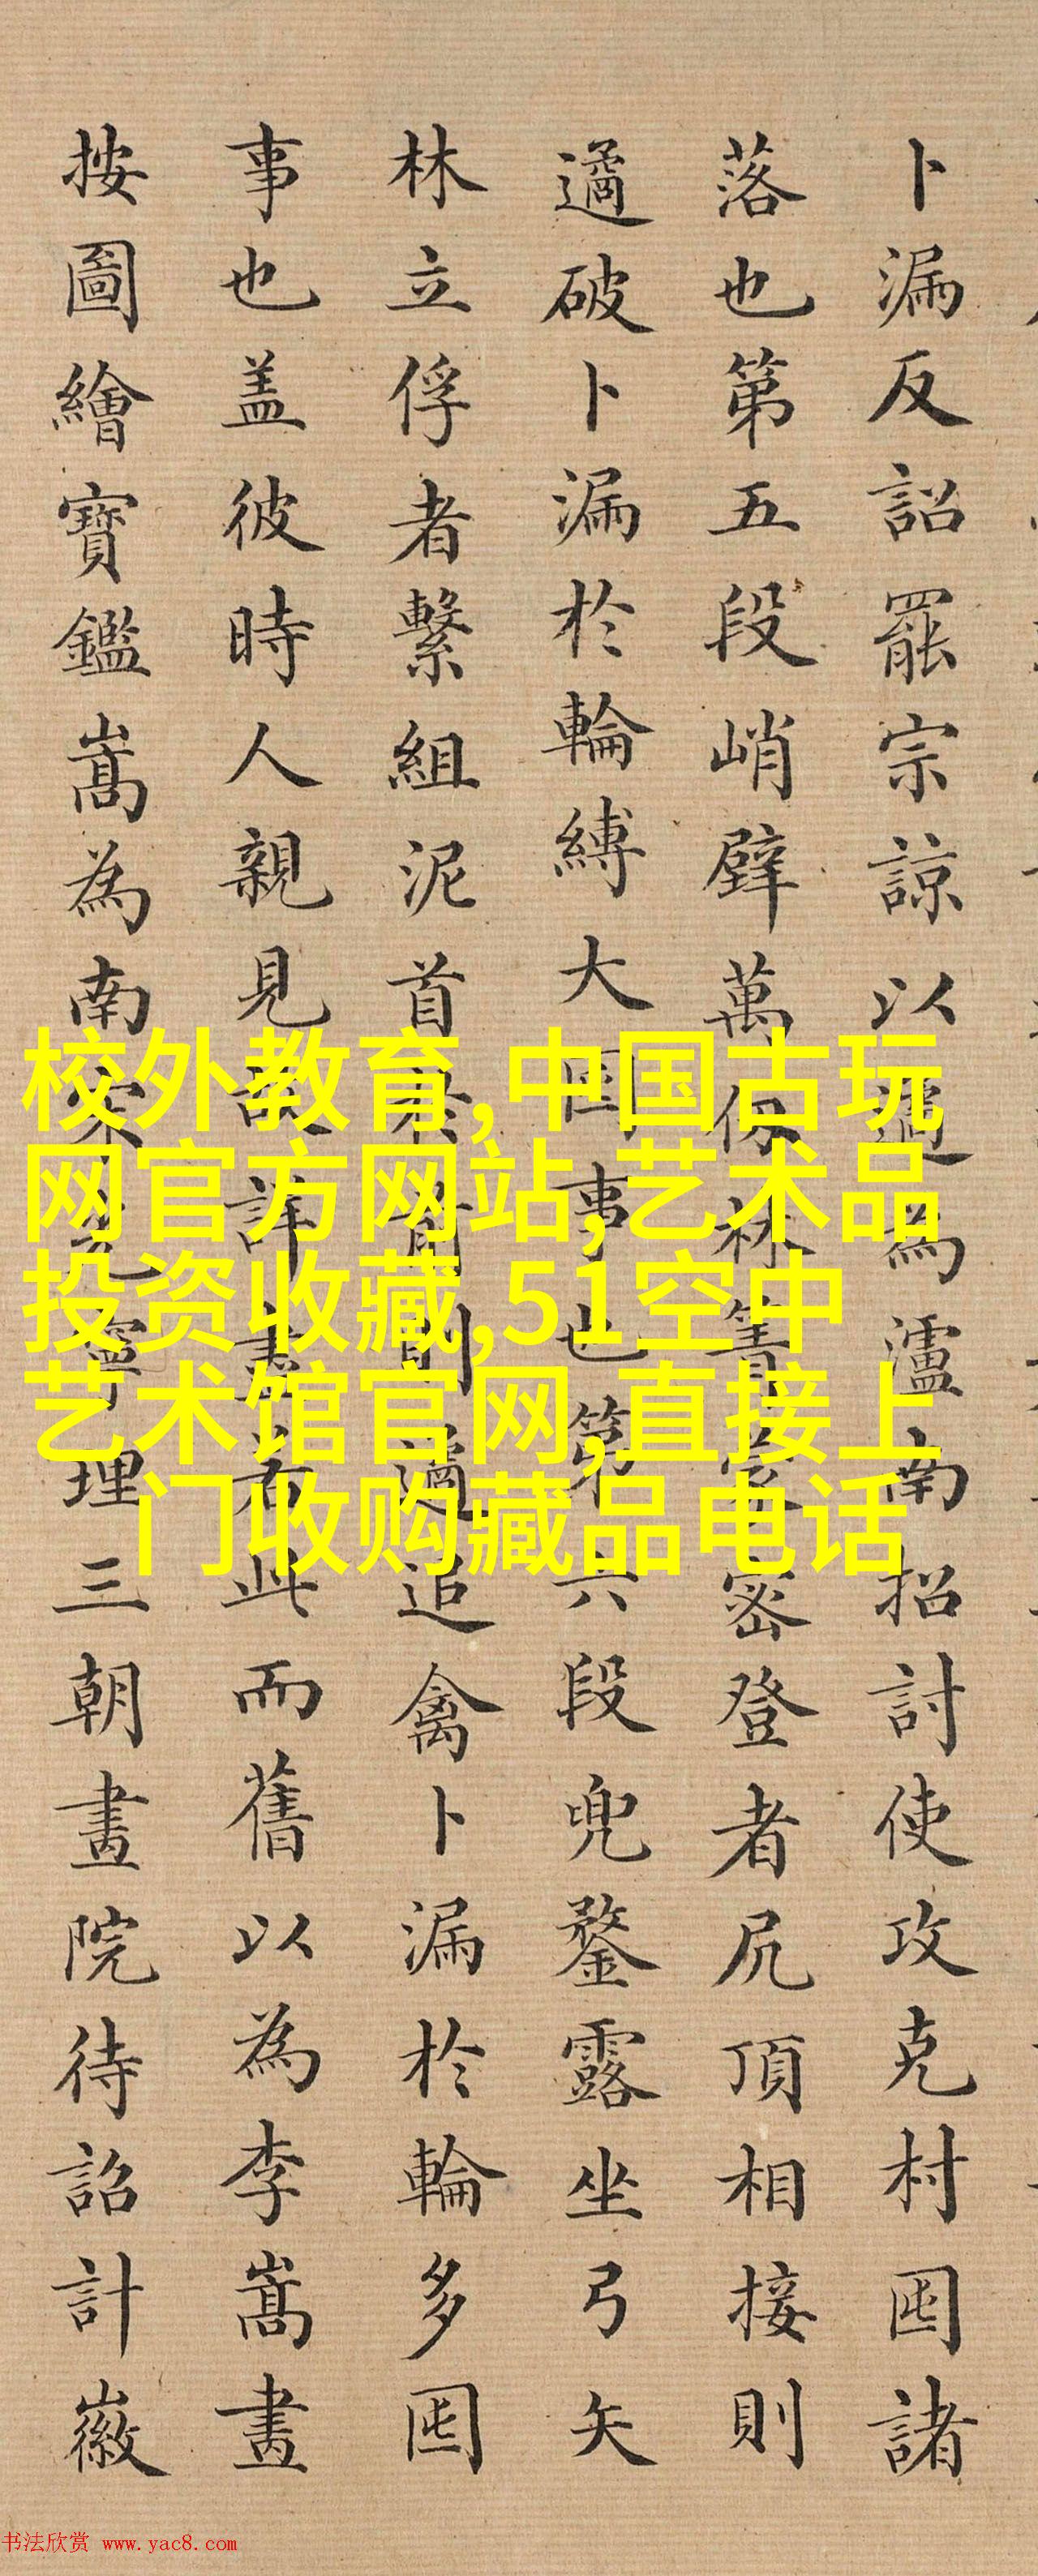 卜漏反詔罷宗諒以遹為瀘南招討使攻克村囤諸
落也第五段峭壁萬仞林箐蒙密登者尻頂相接則
遹破卜漏於輪縛大囤事也第六段兜鍪露坐弓矢
林立俘者繫組泥首於前則遹追禽卜漏於輪多囤
事也盖彼時人親見故詳盡若此而舊以為李嵩畫
按圖繪寶鑑嵩為南宋光寧理三朝畫院待詔計徽
校外教育,中国古玩
网官方网站,艺术品
投资收藏,51空中
艺术馆官网,直接上
门收购藏品电话
书法欣赏 www.yac8.com